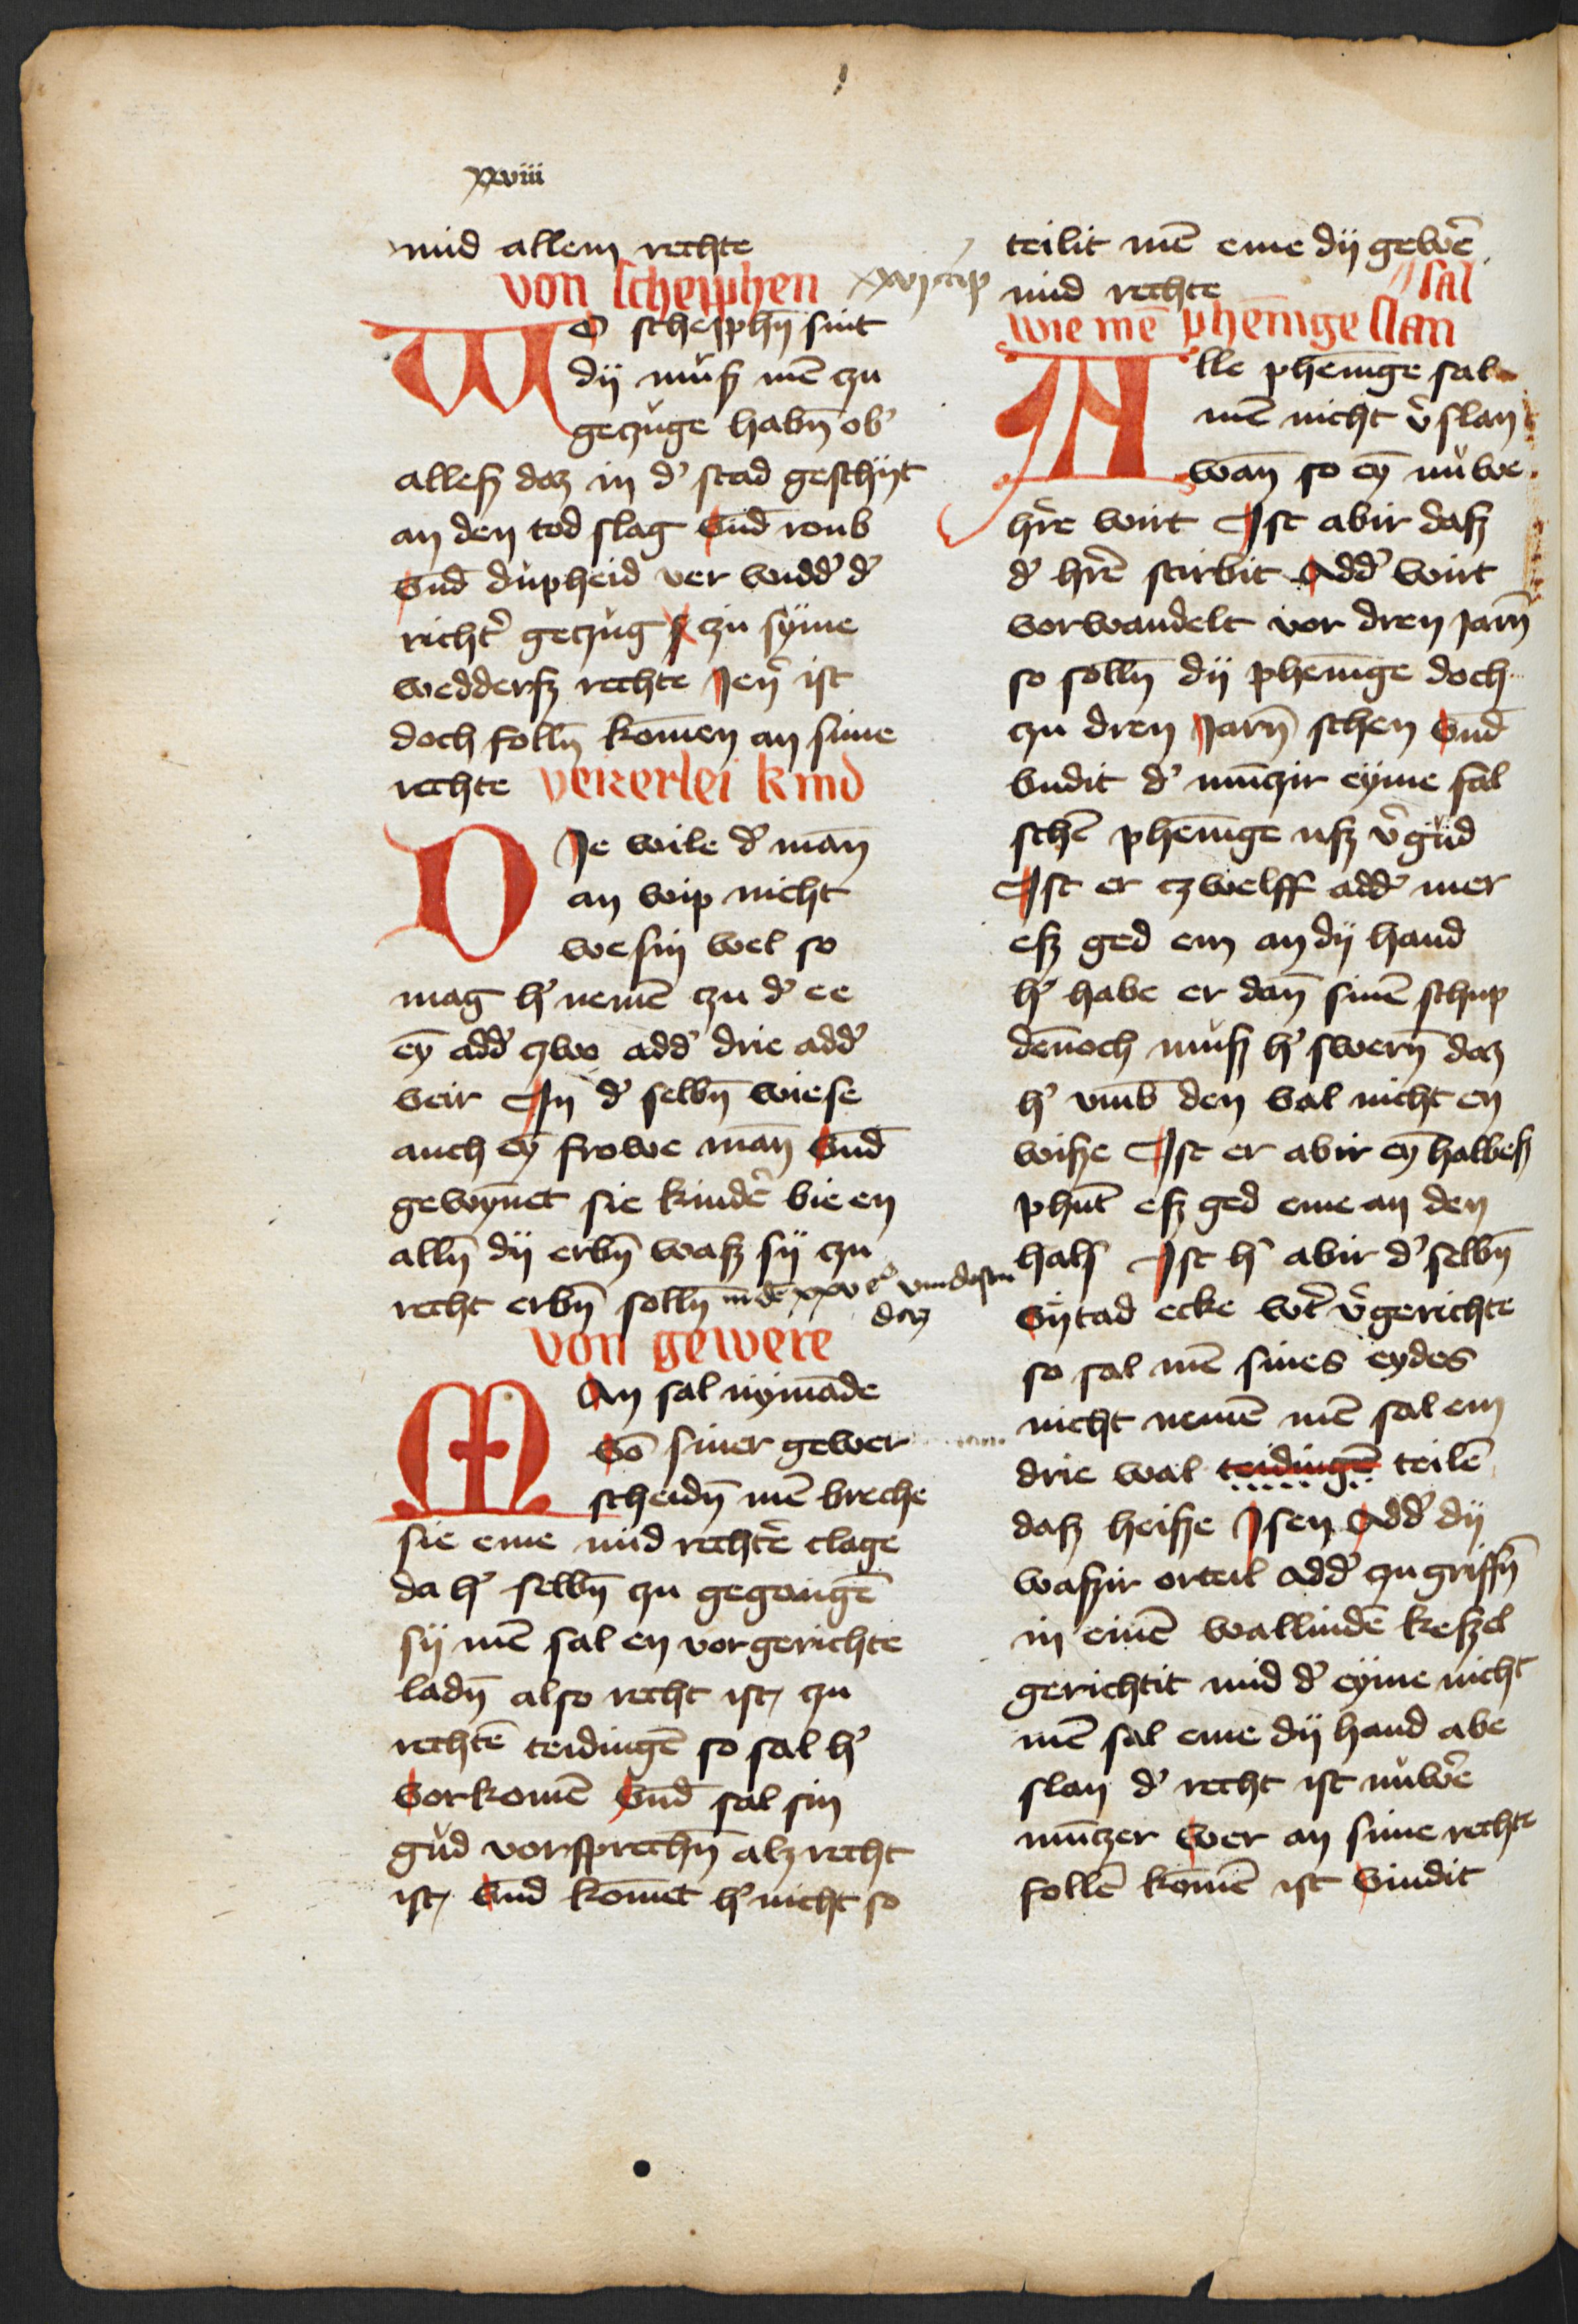 xxviii
mid allem rechte
von scheiphen
WO scheiphn̄ sint
dij můß mē czu
geczůge habn̄ ob᾽
alleß daz in d᾽ stad geschijt
an den tod slag vnd̄ roub
vnd̄ důpheid ver wudd᾽ d᾽
richt᾽ geczůg zů syme
wedderß rechte Jen᾽ ist
doch folln̄ komen an sime
rechte veirerlei kind
DJe wile d᾽ man̄
an wip nicht
wesin wel so
mag h᾽ nemē czu d᾽ ee
eȳ add᾽ czwo add᾽ drie add᾽
veir Jn d᾽ selbn̄ wiese
auch eȳ frowe man̄ vnd̄
gewyn̄et sie kind᾽e bie en
alln̄ dij erbn̄ waß sij czu
recht erbn̄ solln̄
von gewere
MAn sal nymāde
vō siner gewer
scheidn̄ mē breche
sie eme mid recht᾽e clage
da h᾽ selbn̄ zu gegangē
sij mē sal en vor gerichte
ladn̄ also recht ist, zu
rechtē teidingē so sal h᾽
vorkomē vnd̄ sal sin
gůd vorsprechn̄ alz recht
ist, vnd komet h᾽ nicht so
xxvj cap
teilit mē eme dij gew᾽e
mid rechte
sal
wie mē phēnige slan
Alle phēnige sal
mē nicht v᾽slan
wan̄ so eȳ nůwe
h᾽re wirt Jst abir daß
d᾽ hrē stirbit Add᾽ wirt
vorwandelt vor dren Jarn̄
so solln̄ dij phēnige doch
czu dren Jarn̄ schen vnd̄
vindit d᾽ mūczir eyme fal
schē phēnige uß v᾽gůd
Jst er czwelff add᾽ mer
eß ged em an dij hand
h᾽ habe er dan̄ sinē schup
dēnoch můß h᾽ swern̄ daz
h᾽ vmb den val nicht en
wiße Jst er abir eȳ halbeß
phūt eß ged eme an den
halß Jst h᾽ abir d᾽ selbn̄
vntad ecke wt᾽ v᾽gerichte
so sal mē sines eydes
nicht nemē mē sal em
drie wal teidingē teilē
daß heiße Jsen Add᾽ dij
waßir orteil add᾽ zu griffn̄
in einē wallindē keßel
gerichtit mid d᾽ eyme nicht
mē sal eme dij hand abe
slan d᾽ recht ist nůw᾽e
mūczer wer an sime rechte
follē komē ist vindit